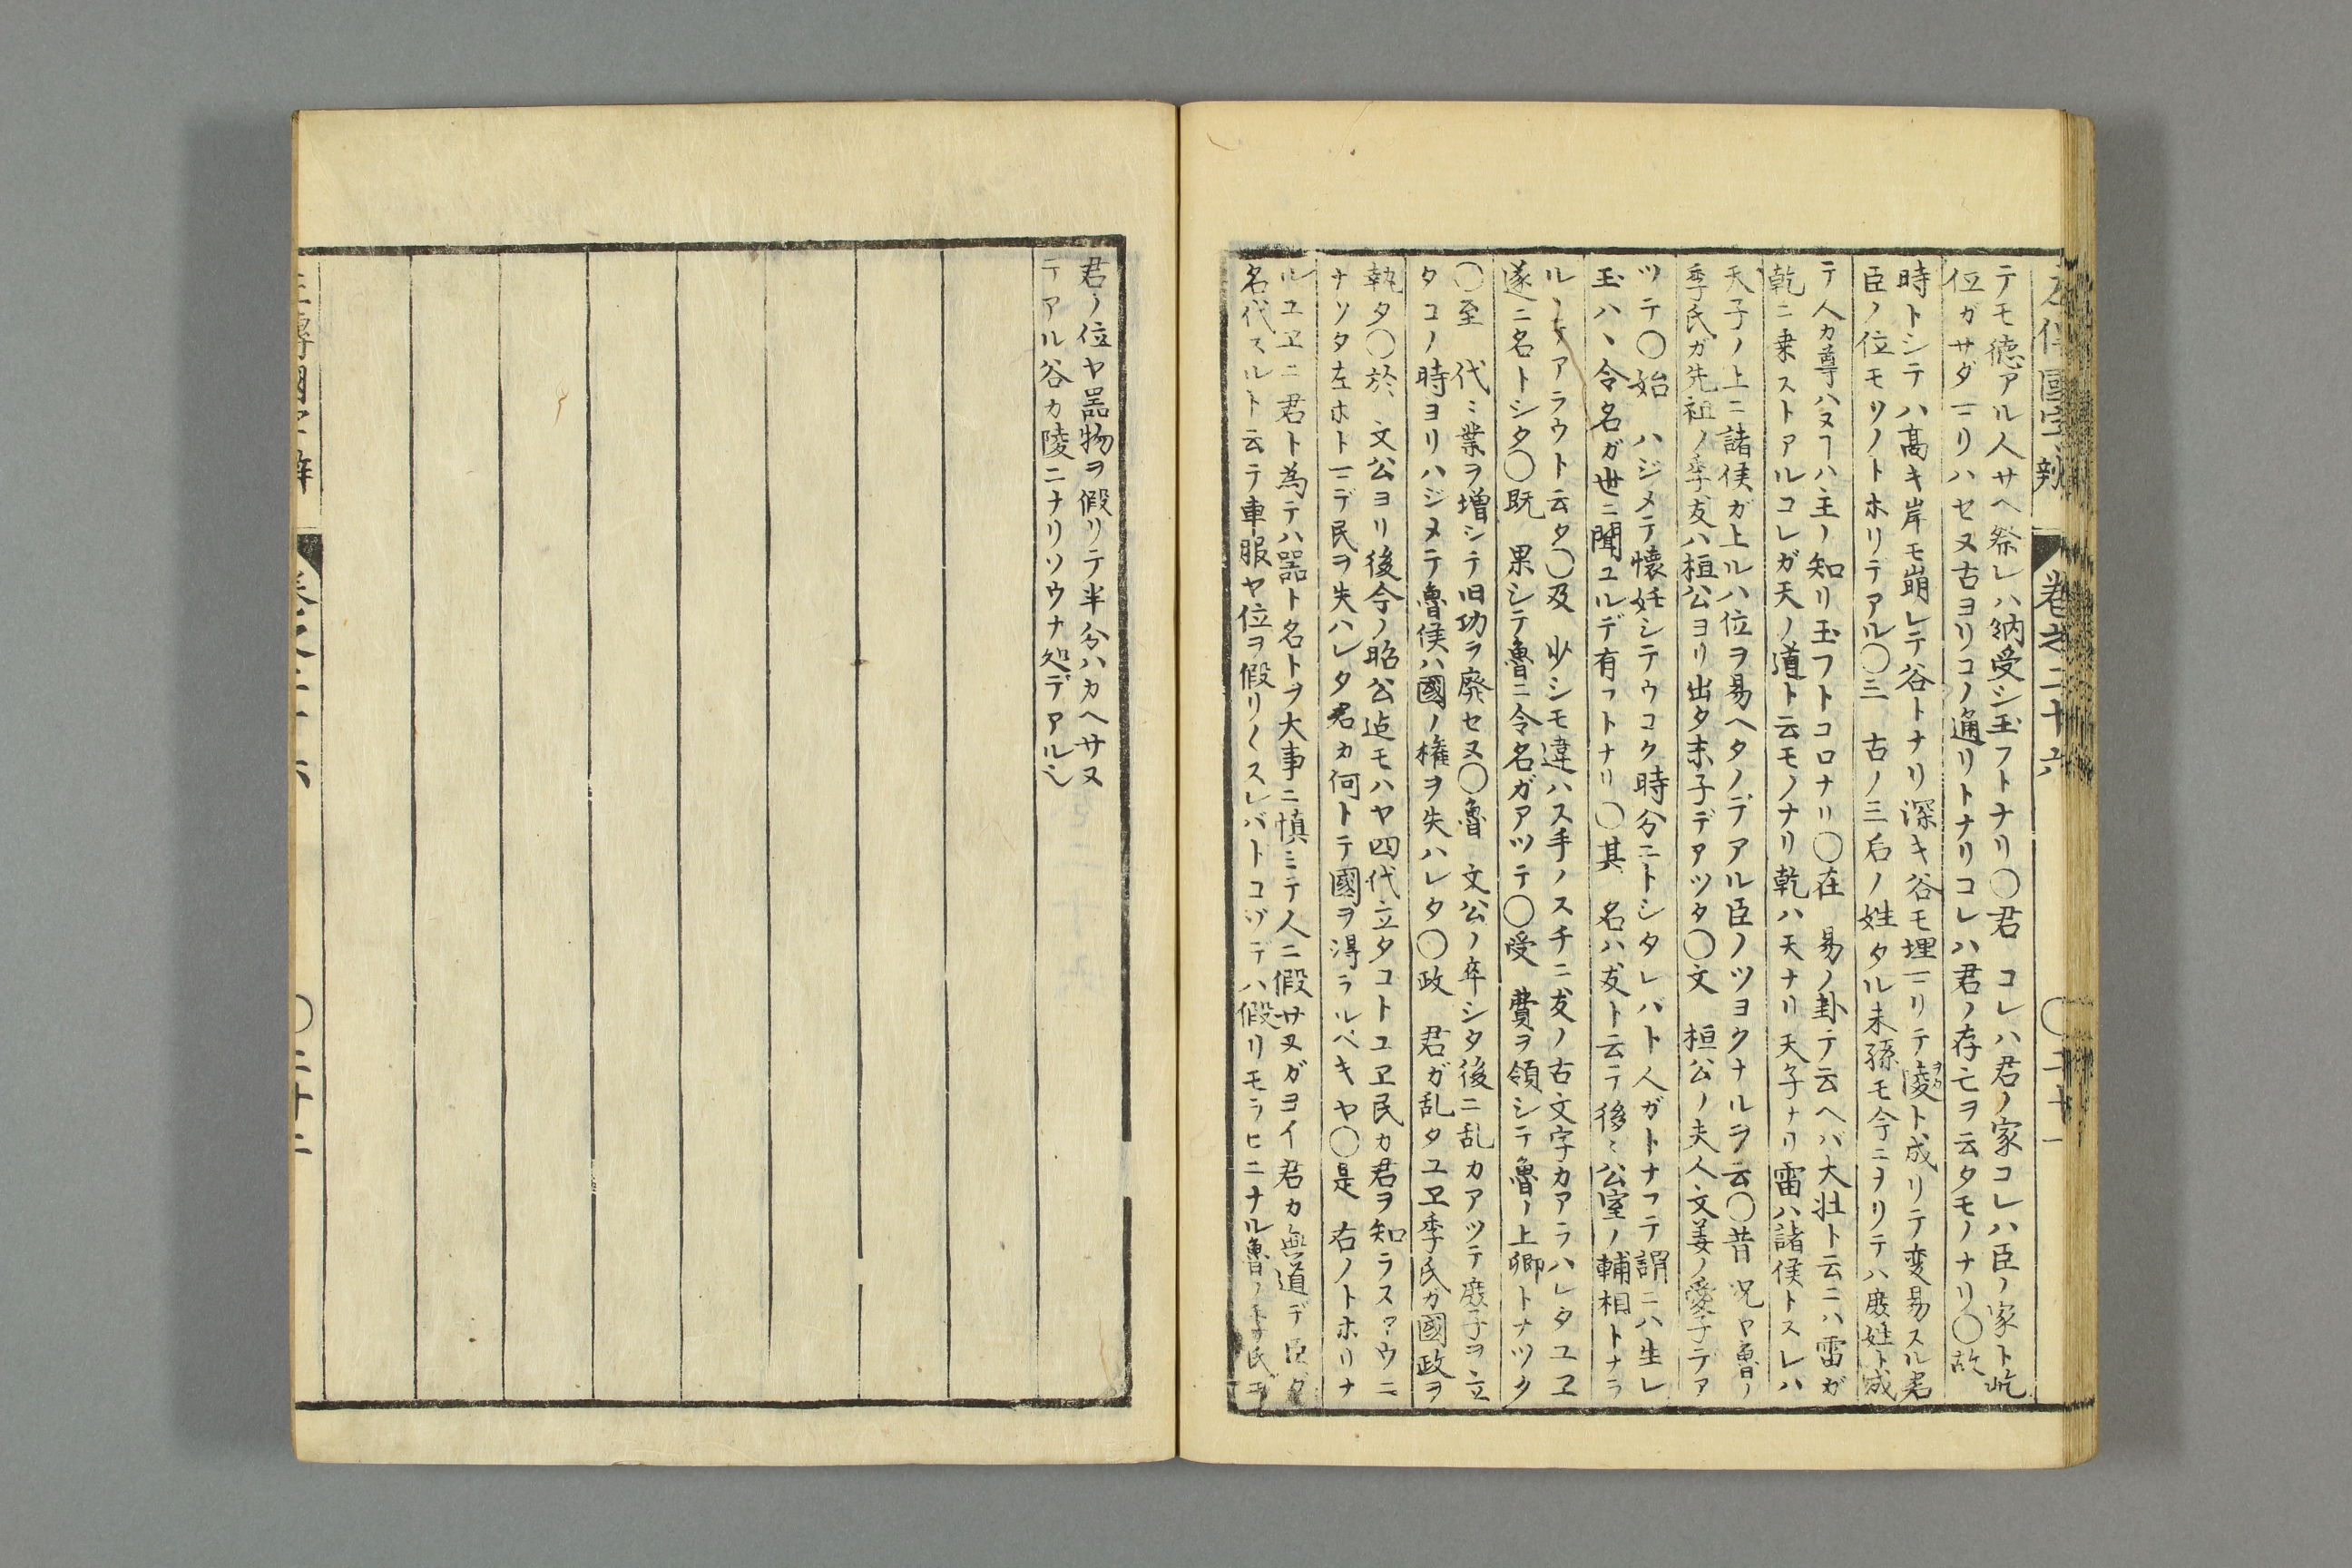 左傳國字辨 巻之二十六 〇二十一
テモ徳アル人サヘ祭レハ納受シ玉フトナリ〇君 コレハ君ノ家コレハ臣ノ家ト屹
位ガサダマリハセヌ古ヨリコノ通リトナリコレハ君ノ存亡ヲ云タモノナリ〇故
時トシテハ髙キ岸モ崩レテ谷トナリ深キ谷モ埋マリテ陵ト成リテ変易スル君
臣ノ位モソノトホリテアル〇三 古ノ三后ノ姓タル末孫モ今ニヲリテハ庶姓ト成
テ人カ尊ハヌヿハ主ノ知リ玉フトコロナリ〇在 易ノ卦テ云ヘバ大壮ト云ニハ雷ガ
乾ニ乗ストアルコレガ天ノ道ト云モノナリ乾ハ天ナリ天子ナリ雷ハ諸侯トスレハ
天子ノ上ニ諸侯ガ上ルハ位ヲ易ヘタノデアル臣ノツヨクナルヲ云〇昔 况ヤ魯ノ
季氏ガ先祖ノ季友ハ桓公ヨリ出タ末子デアツタ〇文 桓公ノ夫人文姜ノ愛子デア
ツテ〇始 ハジメテ懐妊シテウコク時分ニトシタレバト人ガトナフテ謂ニハ生レ
玉ハヽ令名ガ世ニ聞ユルデ有フトナリ〇其 名ハ友ト云テ後ミ公室ノ輔相トナラ
ルヽテアラウト云タ〇及 少シモ違ハス手ノスチニ友ノ古文字カアラハレタユヱ
遂ニ名トシタ〇既 果シテ魯ニ令名ガアツテ〇受 費ヲ領シテ魯ノ上卿トナツタ
〇至 代ミ業ヲ増シテ旧功ヲ廃セヌ〇魯 文公ノ卒シタ後ニ乱カアツテ庶子ヲ立
タコノ時ヨリハジメテ魯侯ハ國ノ権ヲ失ハレタ〇政 君ガ乱タユヱ季氏カ國政ヲ
執タ〇於 文公ヨリ後今ノ昭公迠モハヤ四代立タコトユヱ民カ君ヲ知ラスアウニ
ナツタ左ホトマデ民ヲ失ハレタ君カ何トテ國ヲ得ラルベキヤ〇是 右ノトホリナ
ルユヱニ君ト為テハ器ト名トヲ大事ニ慎ミテ人ニ假サヌガヨイ君カ無道デ臣ガ
名代スルト云テ車服ヤ位ヲ假リ〱スレバトコマデハ假リモラヒニナル魯ノ季氏モ
君ノ位ヤ器物ヲ假リテ半分ハカヘサヌ
テアル谷カ陵ニナリソウナ処デアルシ
左傳國字辨 巻之二十六 〇二十二